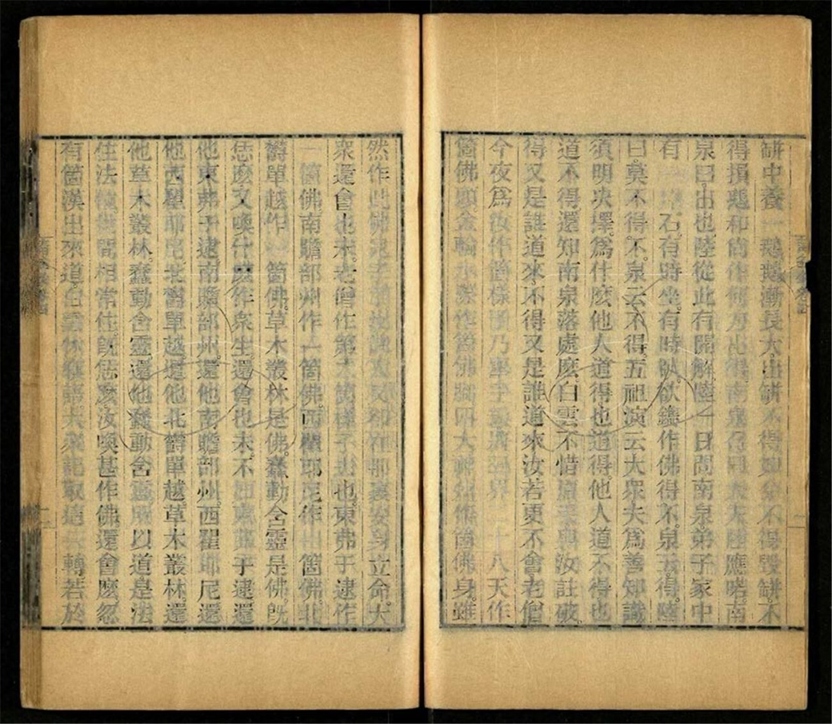 缾中養一鵝鵝漸長大出缾不得如今不得毀缾不
得損鵝和尚作何方出得南泉召曰大夫陸應喏南
泉曰出也陸從此有開解陸一日問南泉弟子家中
有一片石有時坐有時臥欲鐫作佛得不泉云得陸
曰莫不得不泉云不得五祖演云大衆夫爲善知識
須明决擇爲什麽他人道得也道得他人道不得也
道不得還知南泉落處麽白雲不惜眉毛與汝註破
得又是誰道來不得又是誰道來汝若更不會老僧
今夜爲汝作箇樣子乃舉手云將三界二十八天作
箇佛頭金輪水際作箇佛脚四大部州作箇佛身雖
然作此佛兒子了汝諸人又却在那裏安身立命大
衆還會也未老僧作第二箇樣子去也東弗于逮作
一箇佛南贍部州作一箇佛西瞿耶尼作一箇佛北
鬱單越作一箇佛草木叢林是佛蠢動含靈是佛旣
恁麽又喚什麽作衆生還會也未不如東弗于逮還
他東弗于逮南贍部州還他南贍部州西瞿耶尼還
他西瞿耶尼北鬱單越還他北鬱單越草木叢林還
他草木叢林蠢動含靈還他蠢動含靈所以道是法
住法位世間相常住旣恁麽汝喚甚作佛還會麽忽
有箇漢出來道白雲休寱語大衆記取這一轉若於